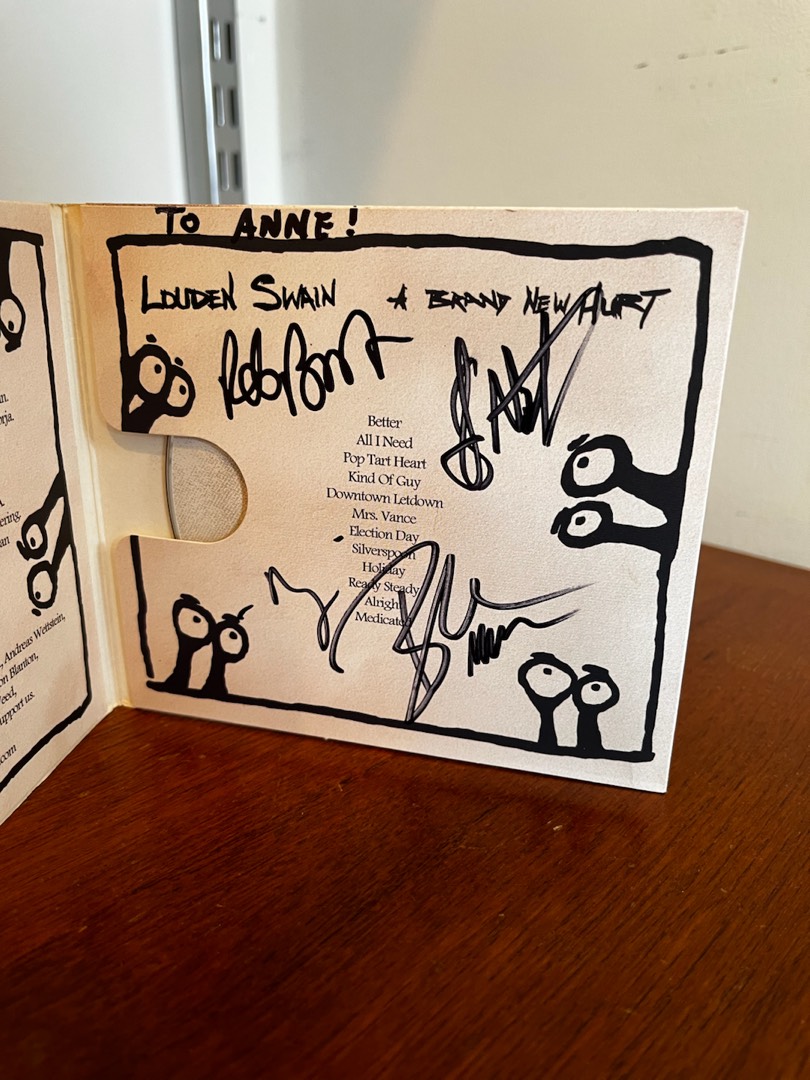 TO ANNE!
LOUDEN SWAIN A BRAND NEW HURT
Better
All I Need
Pop Tart Heart
Kind Of Guy
Downtown Letdown
Mrs. Vance
Election Day
Silverspoon
Holiday
Ready Steady
Alright
Medicated
ering,
an
, Andreas Wettstein,
on Blanton,
upport us.
.com